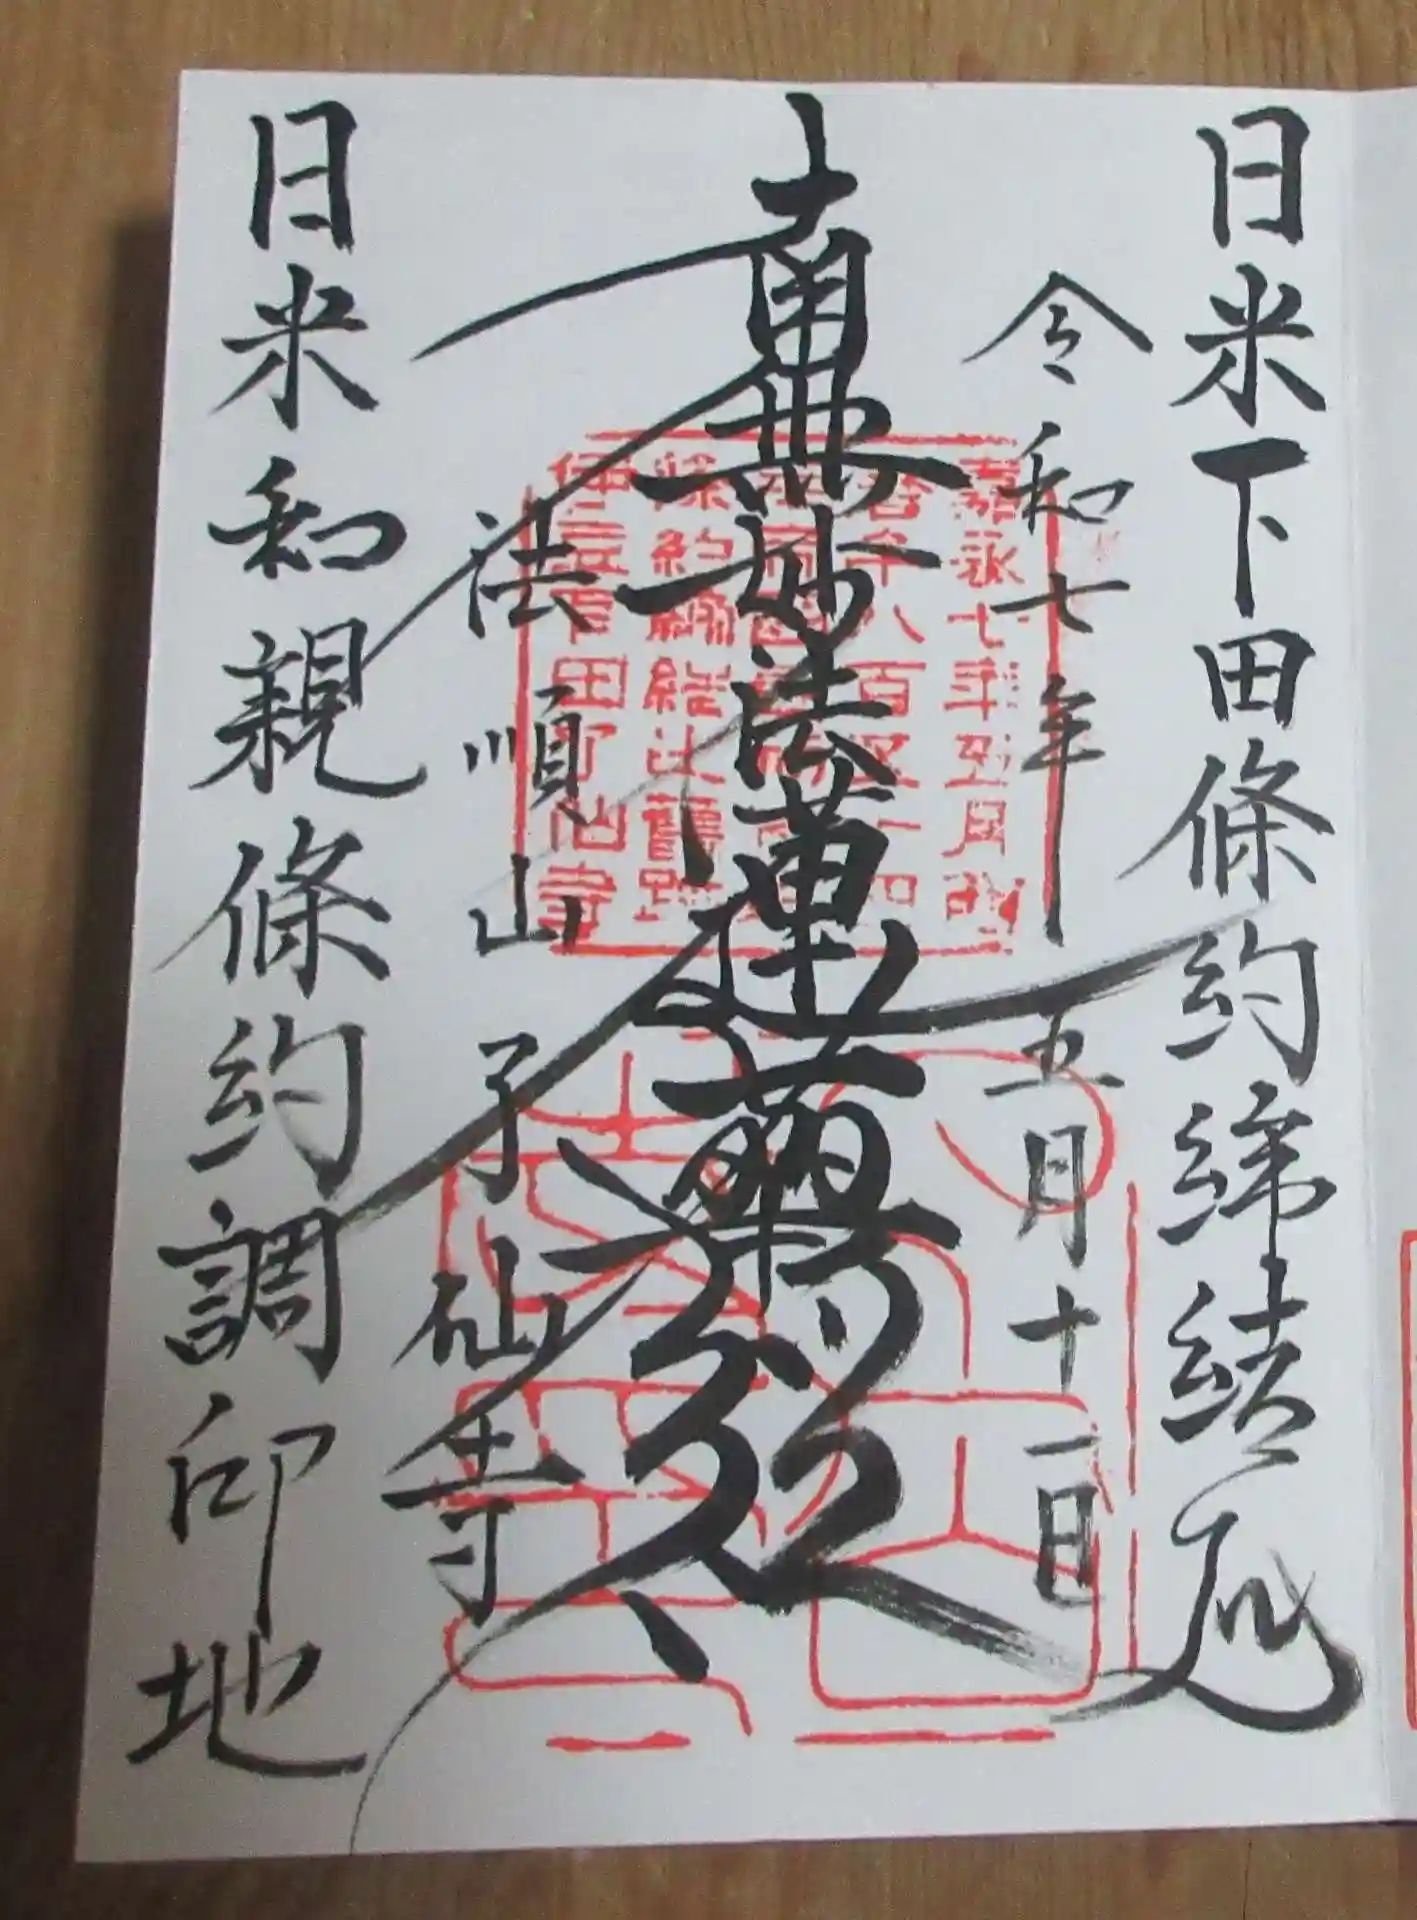 日米下田條約締結
令和七年 五月十一日
南無妙法蓮華経
法順山 了仙寺
日米和親條約調印地
嘉永七年五月
八百五十四
條約締結之舊跡
伊豆下田了仙寺